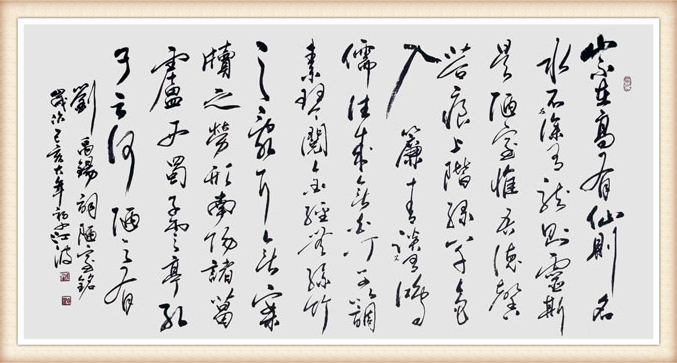 山不在高有仙則名
水不在深有龍則靈斯
是陋室惟吾德馨
苔痕上階綠草色
入簾青談笑有鴻
儒往來無白丁可以調
素琴閱金經無絲竹
之亂耳無案
牘之勞形南陽諸葛
廬西蜀子雲亭孔
子云何陋之有
劉禹錫詞陋室銘
歲次己亥大年初江波